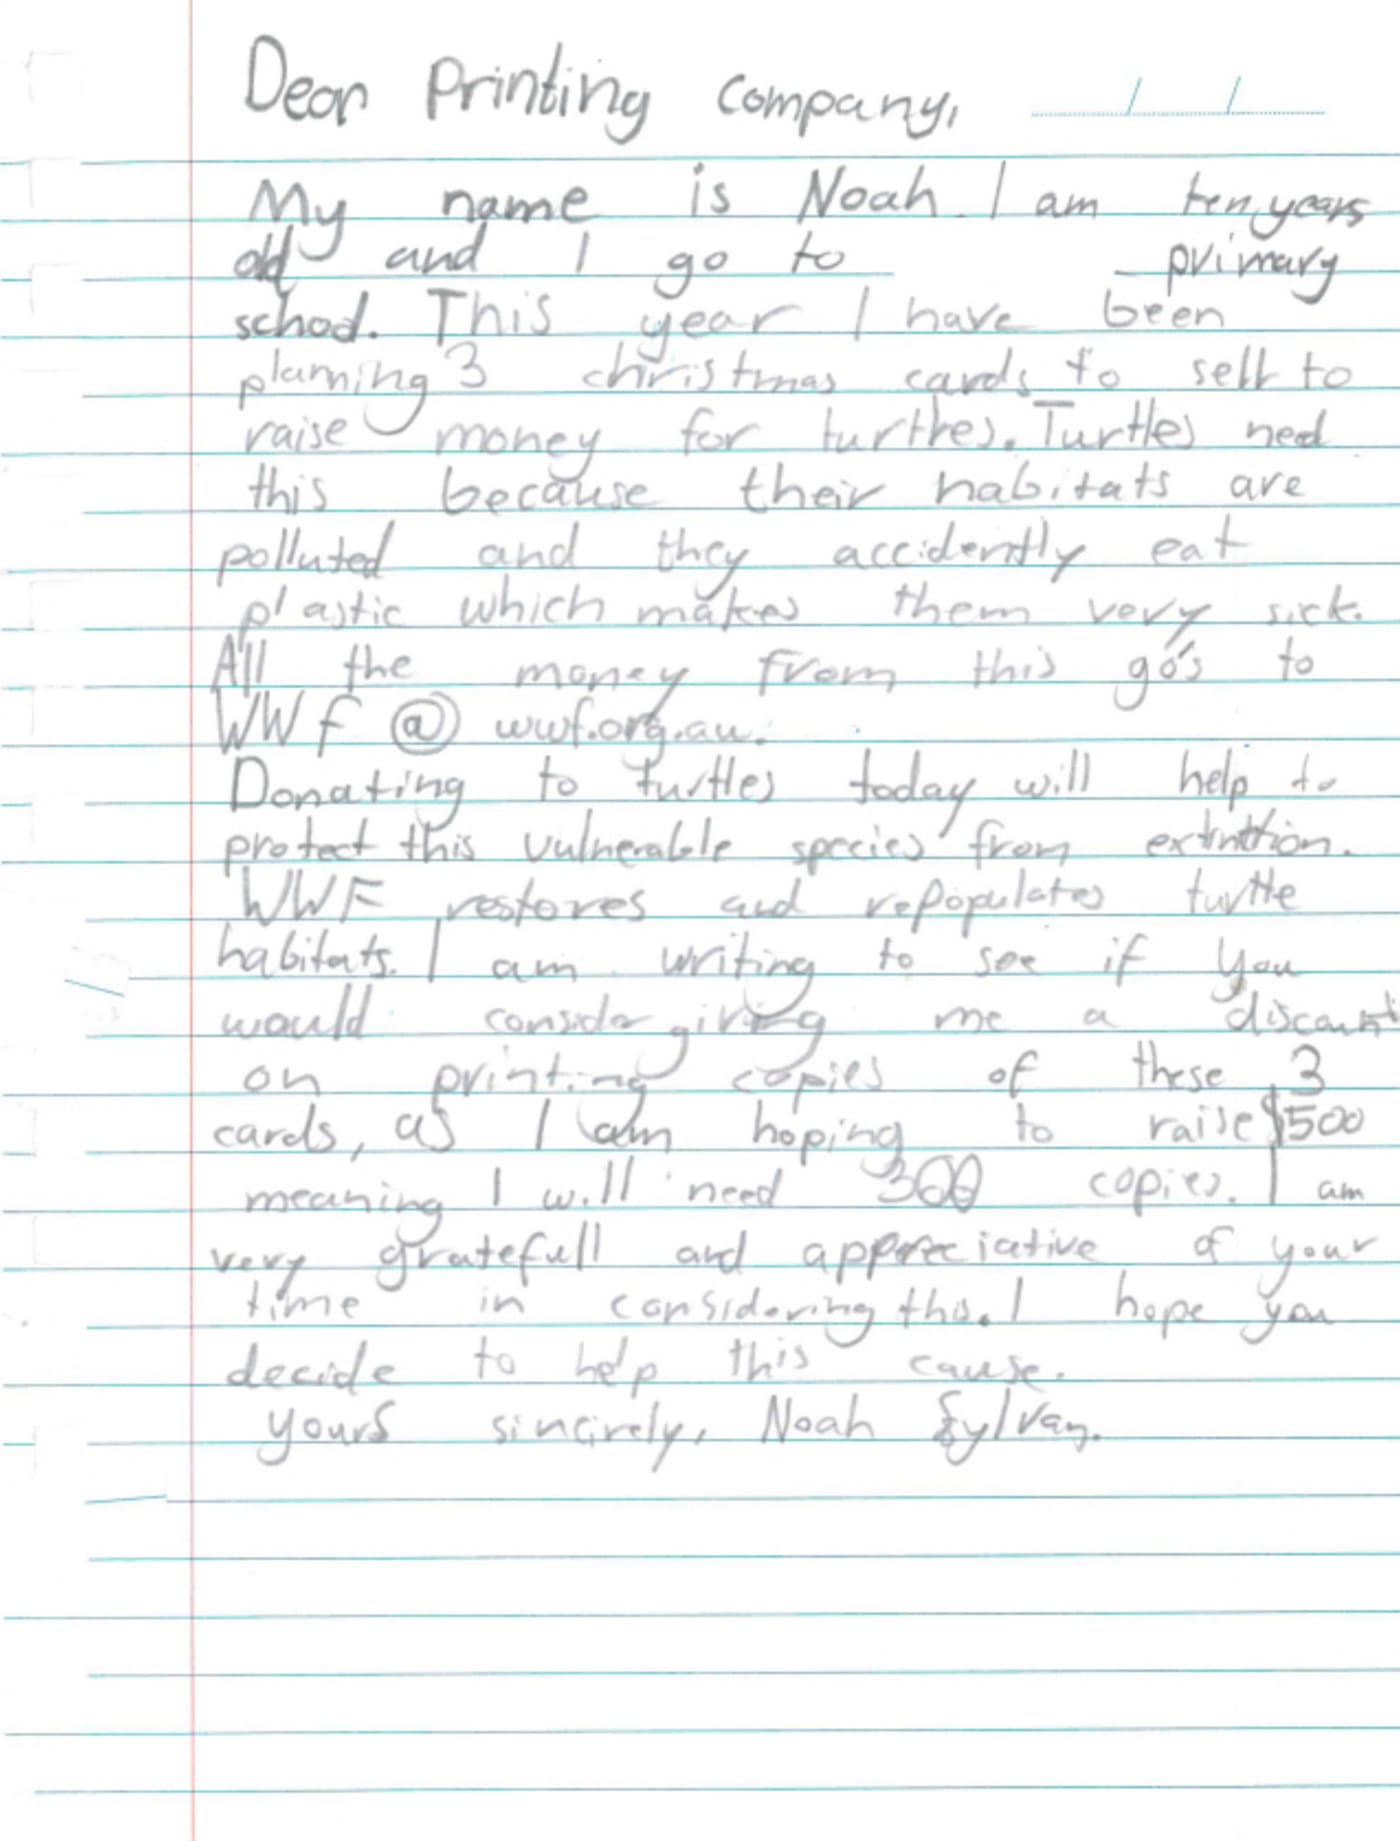 Dear Printing Company,
My name is Noah. I am ten years
old and I go to primary
school. This year I have been
planning 3 christmas cards to sell to
raise money for turtles. Turtles need
this because their habitats are
polluted and they accidently eat
plastic which makes them very sick.
All the money from this go's to
WWF @ wwf.org.au.
Donating to turtles today will help to
protect this vulnerable species from extinttion.
WWF restores and repopulates turtle
habitats. I am writing to see if you
would consider giving me a discount
on printing copies of these 3
cards, as I am hoping to raise $500
meaning I will need 300 copies. I am
very gratefull and appreciative of your
time in considering this. I hope you
decide to help this cause.
yours sincirely, Noah Sylvan.